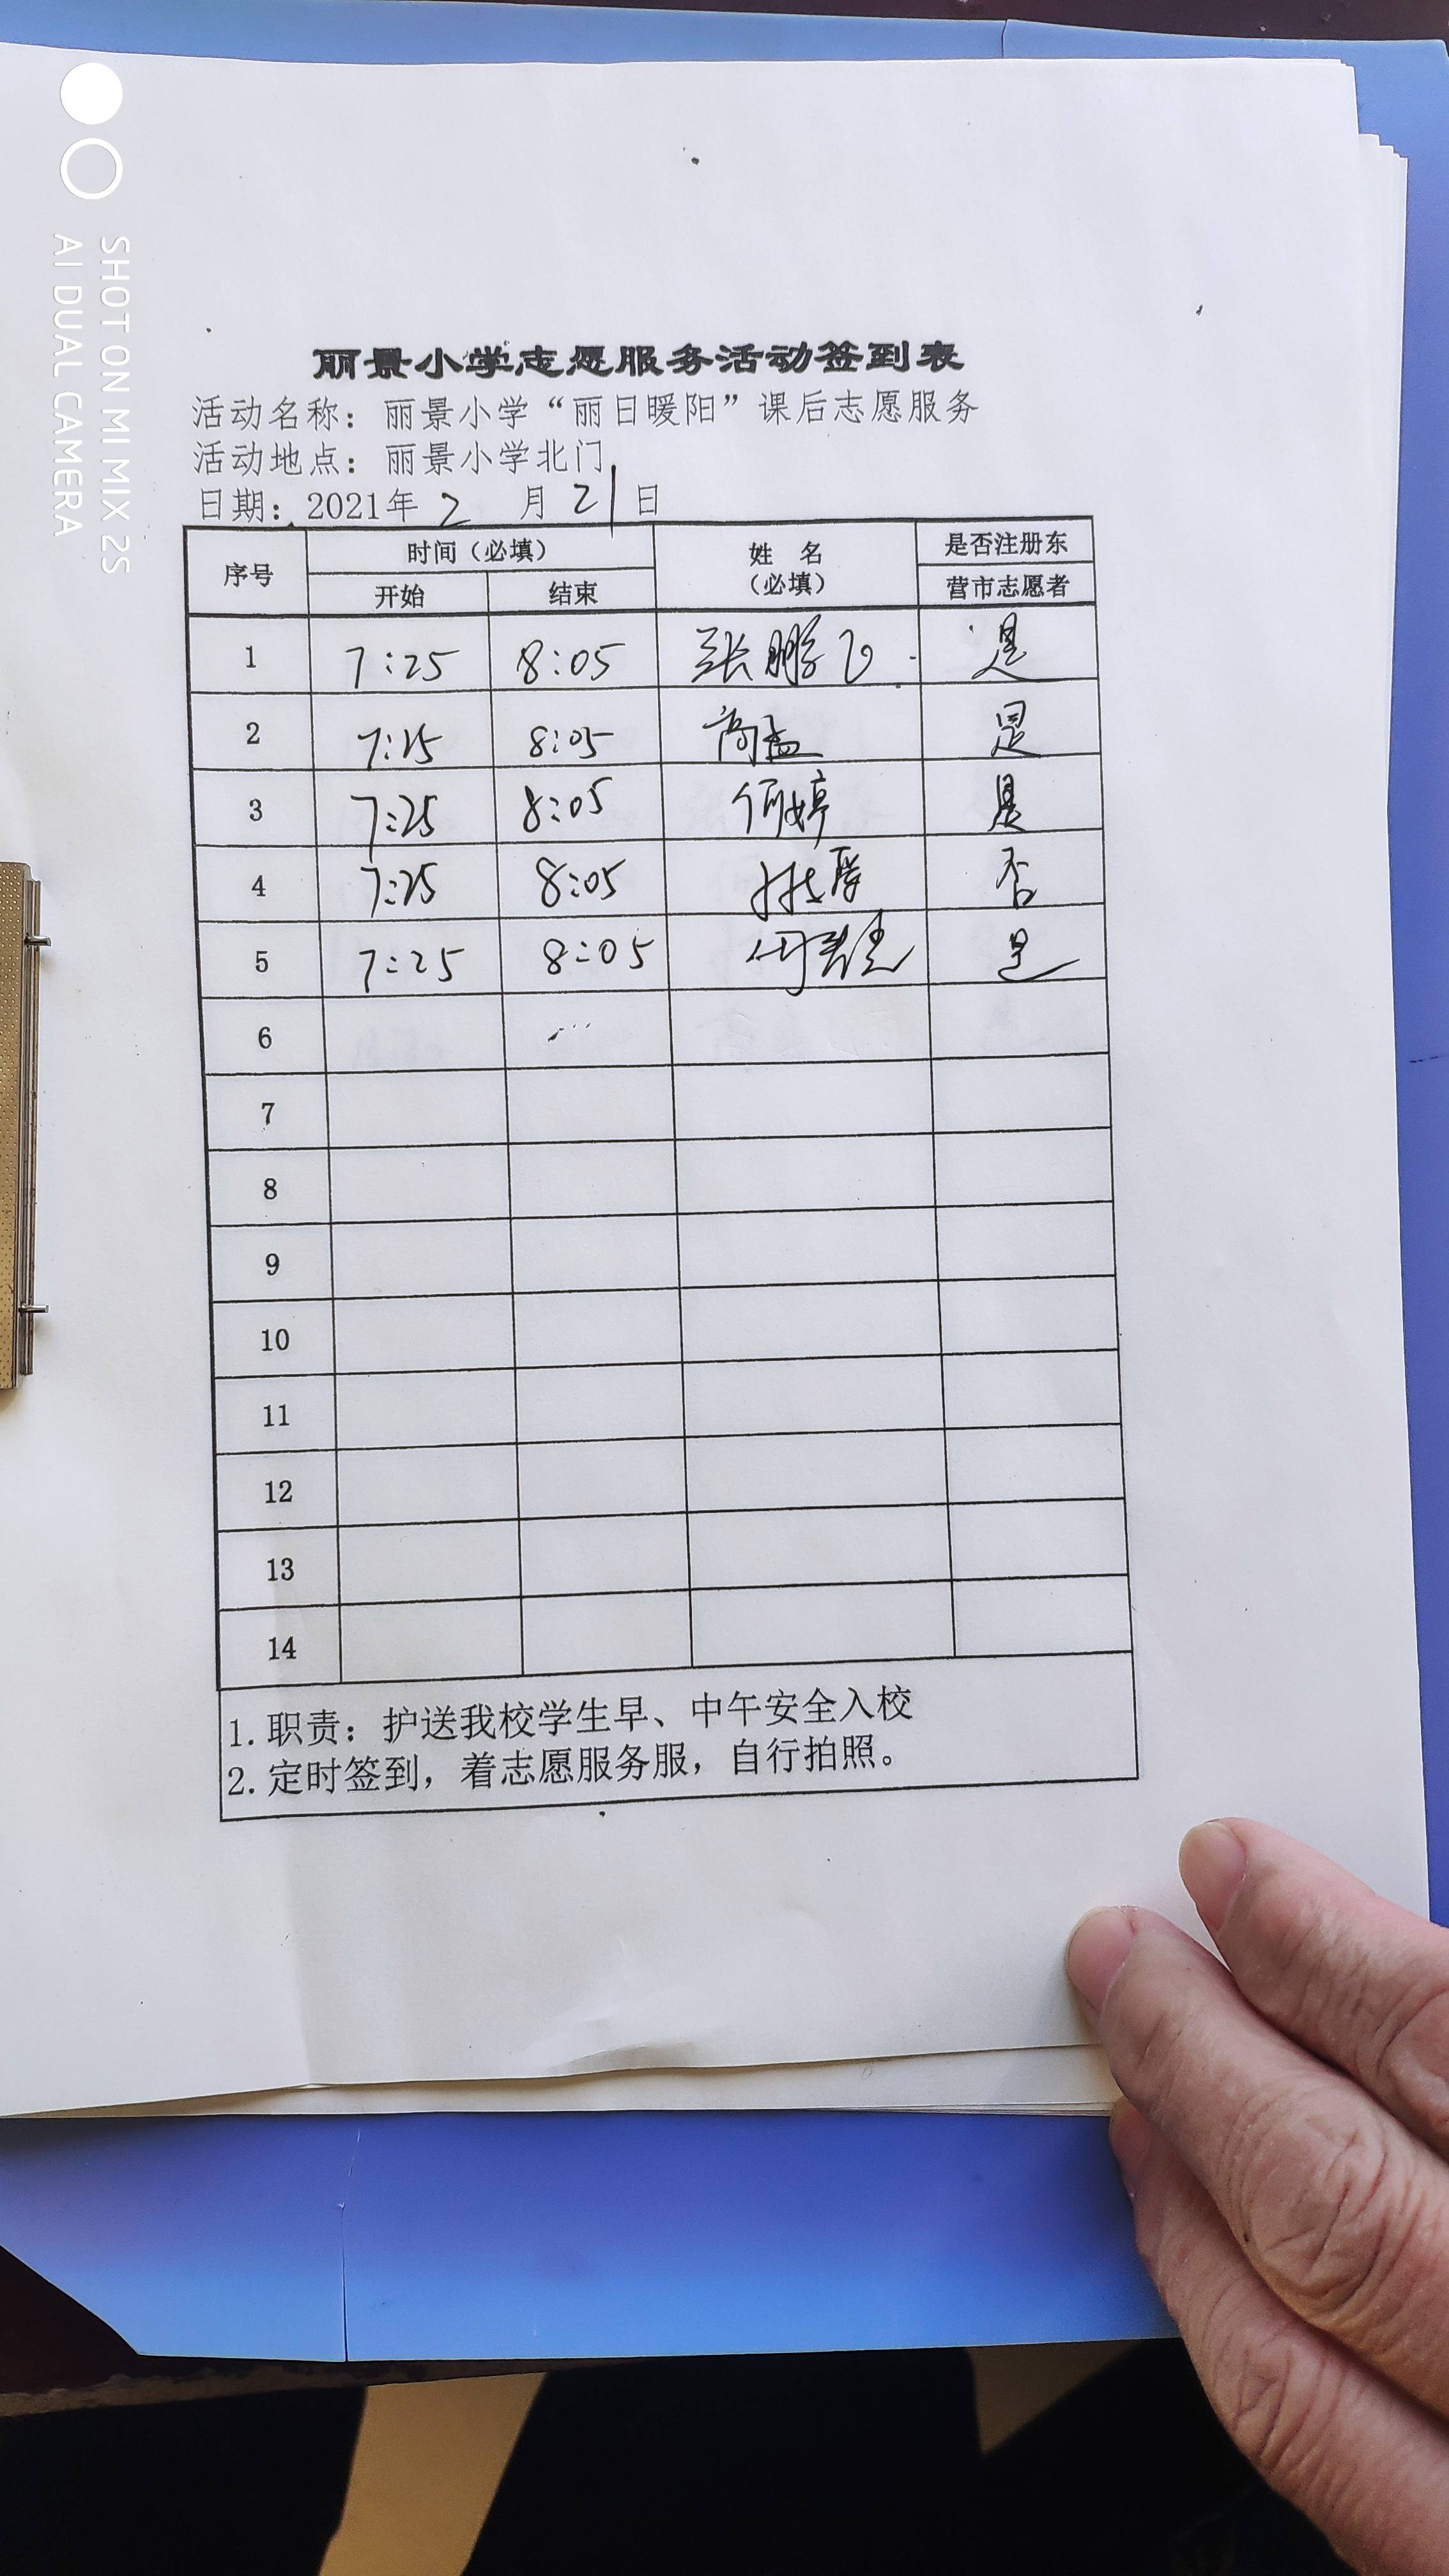 丽景小学志愿服务活动签到表
活动名称：丽景小学“丽日暖阳”课后志愿服务
活动地点：丽景小学北门
日期：2021年 2 月 21 日
序号 时间（必填） 姓 名 是否注册东
开始 结束 （必填） 营市志愿者
1 7:25 8:05 张鹏飞 是
2 7:25 8:05 高孟 是
3 7:25 8:05 何婷 是
4 7:25 8:05 否
5 7:25 8:05 是
6
7
8
9
10
11
12
13
14
1.职责：护送我校学生早、中午安全入校
2.定时签到，着志愿服务服，自行拍照。
SHOT ON MI MIX 2S
AI DUAL CAMERA